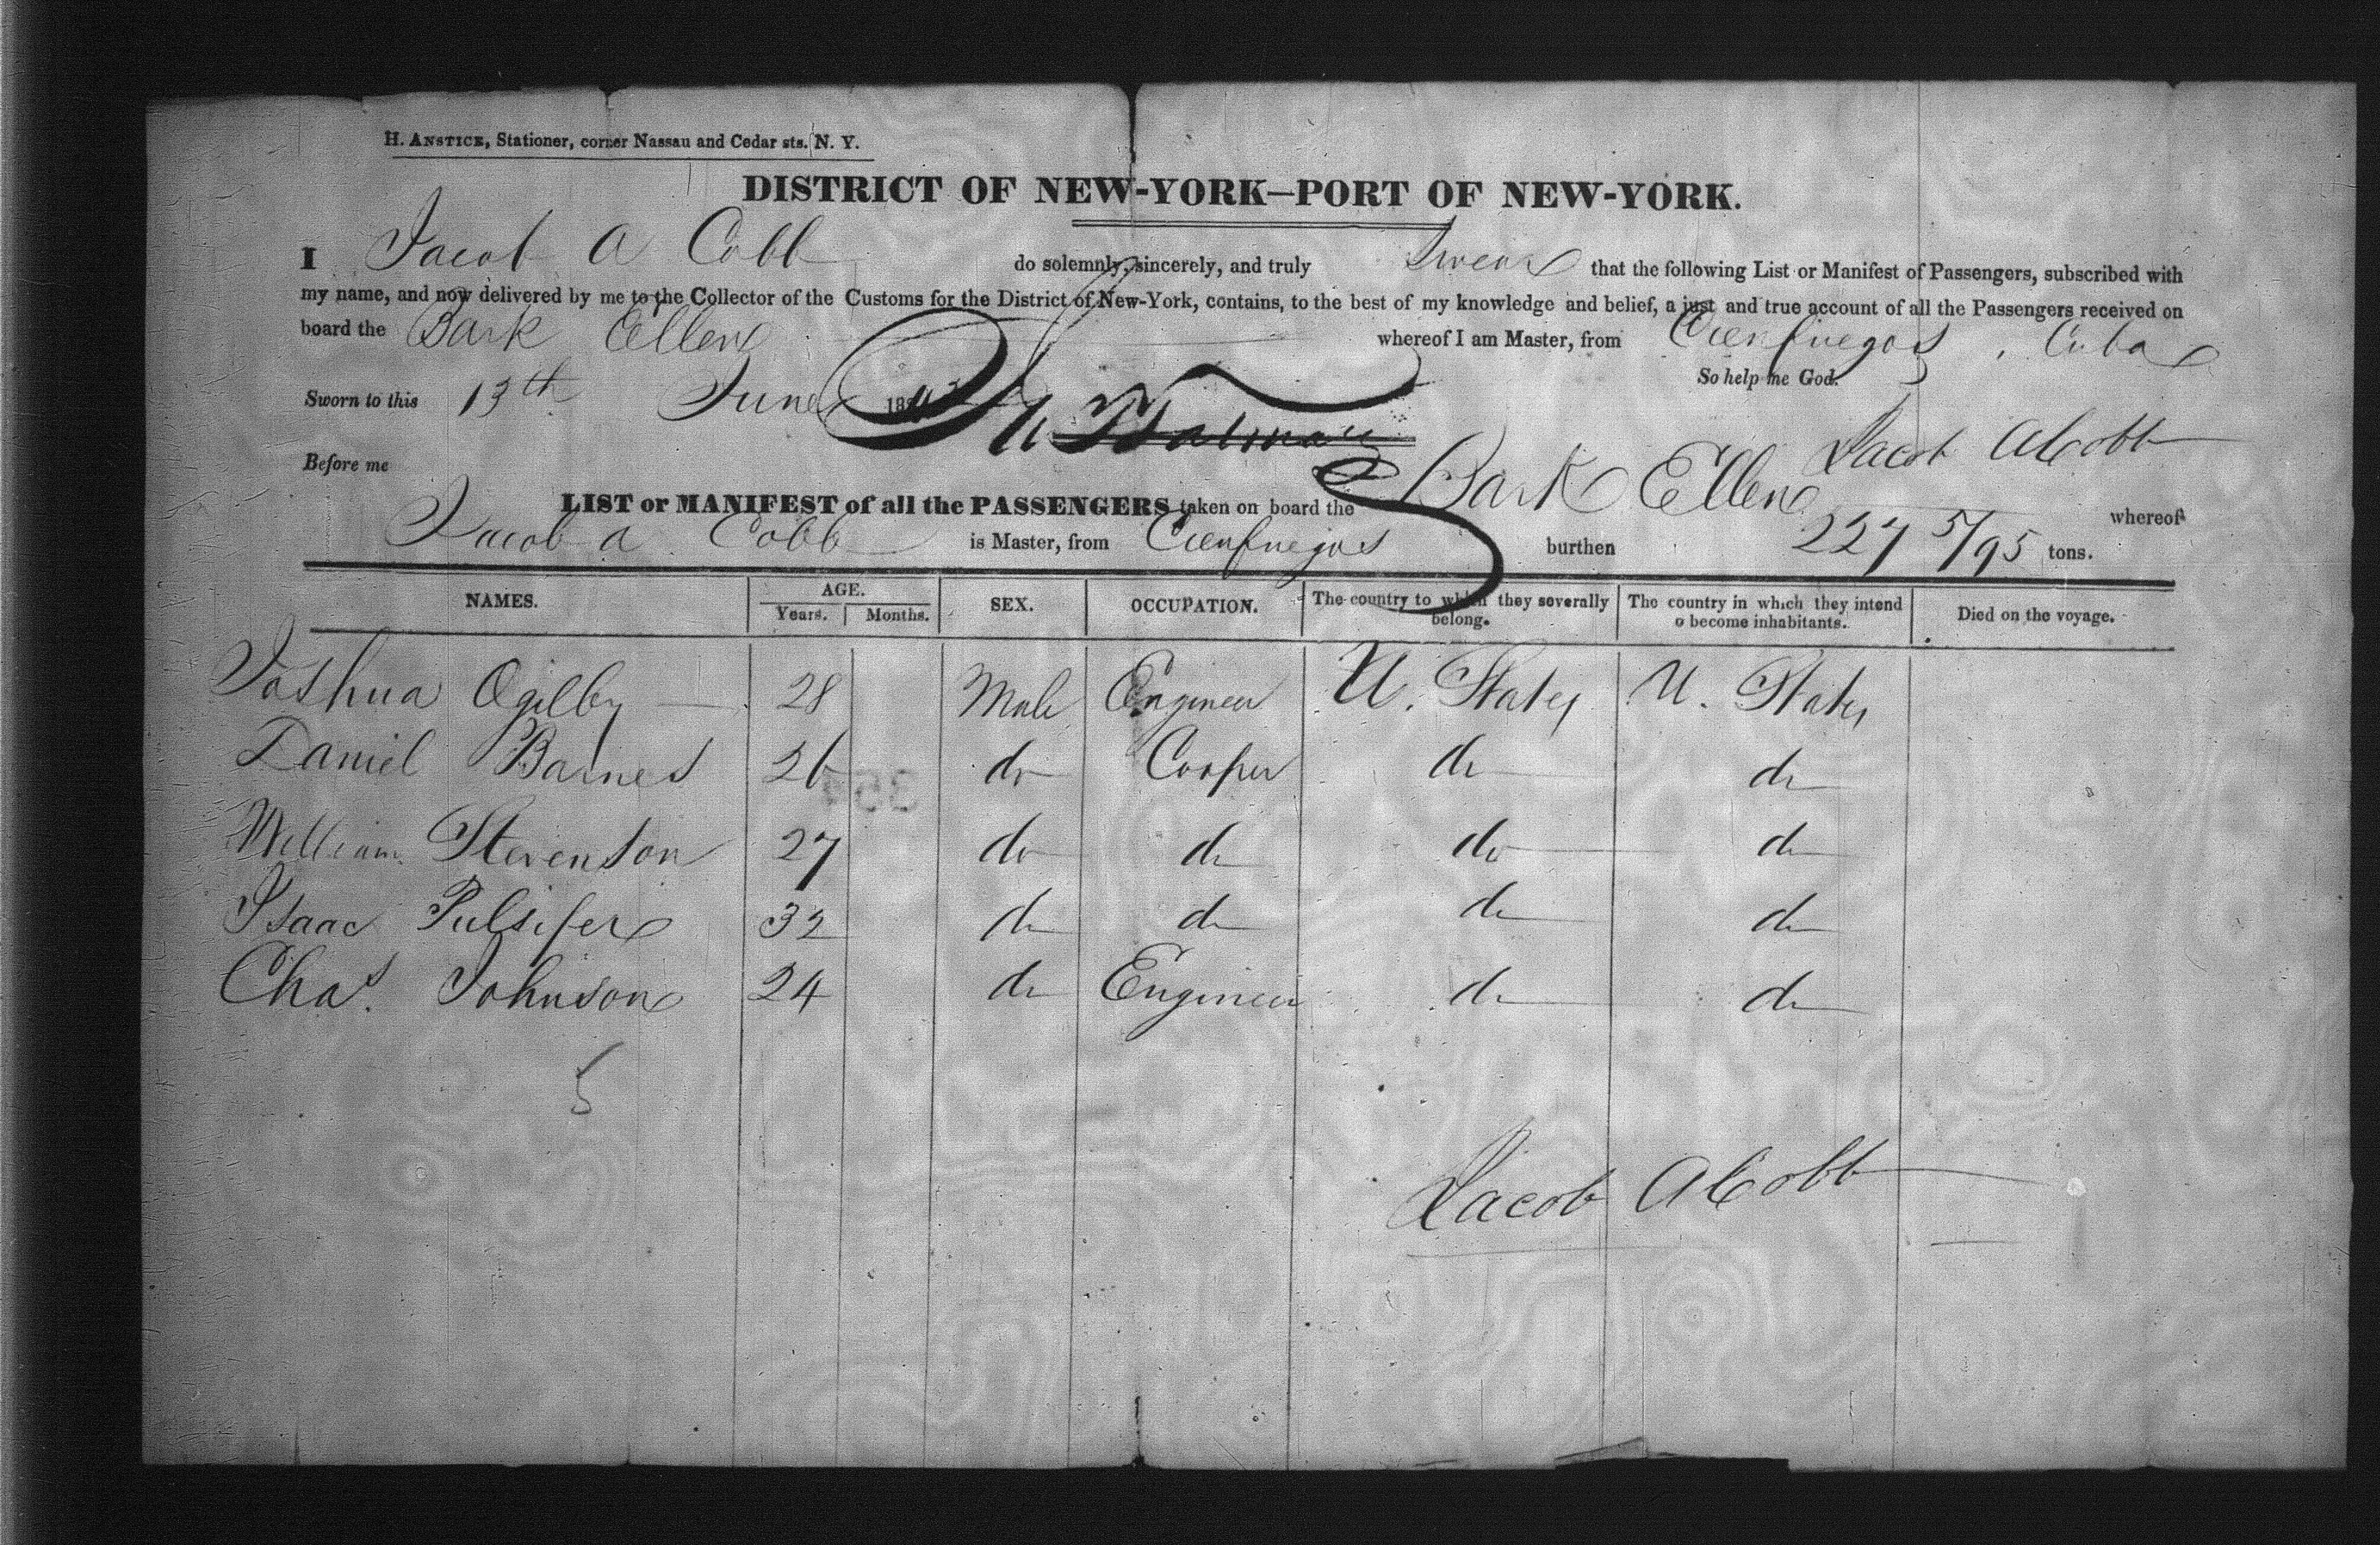 H. ANSTICE, Stationer, corner Nassau and Cedar sts. N. Y.
DISTRICT OF NEW-YORK—PORT OF NEW-YORK.
I Jacob A Cobb do solemnly, sincerely, and truly Swear that the following List or Manifest of Passengers, subscribed with
my name, and now delivered by me to the Collector of the Customs for the District of New-York, contains, to the best of my knowledge and belief, a just and true account of all the Passengers received on
board the Bark Ellen whereof I am Master, from Cienfuegos, Cuba
So help me God.
Sworn to this 13th June
Jacob A Cobb
Before me
LIST or MANIFEST of all the PASSENGERS taken on board the Bark Ellen whereof
Jacob A Cobb is Master, from Cienfuegos burthen 227 5/95 tons.
NAMES. AGE. Years. Months. SEX. OCCUPATION. The country to which they severally belong. The country in which they intend o become inhabitants. Died on the voyage.
Joshua Ogilby 28 Male Engineer U. States U. States
Daniel Barnes 26 do Cooper do do
William Stevenson 27 do do do do
Isaac Pulsifer 32 do do do do
Chas. Johnson 24 do Engineer do do
5
Jacob A Cobb